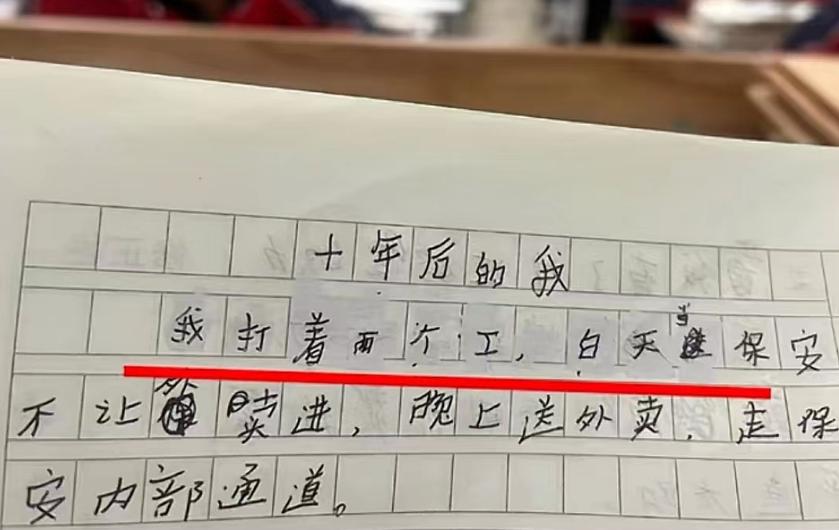 十年后的我
我打着两个工，白天当保安
不让外卖进，晚上送外卖，走保
安内部通道。